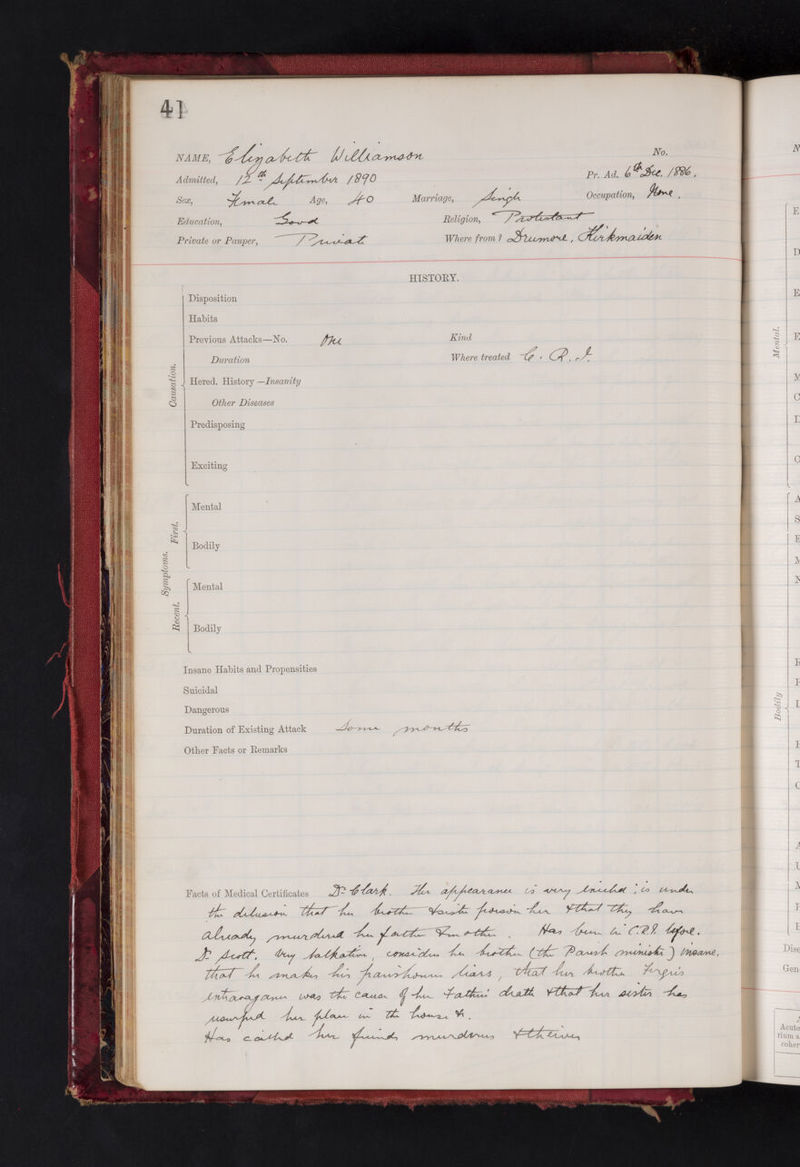 41
NAME, Elizabeth Williamson No.
Admitted, 12th September 1890 Pr. Ad. 6th Dec. 1886.
Sex, Female Age, 40 Marriage, Single Occupation, None.
Education, Good Religion, Protestant
Private or Pauper, Private Where from? Drumore, Kirkmaiden
HISTORY.
Causation.
Disposition
Habits
Previous Attacks—No. One Kind
Duration Where treated C. R. I.
Hered. History—Insanity
Other Diseases
Predisposing
Exciting
Symptoms.
First.
Mental
Bodily
Recent.
Mental
Bodily
Insane Habits and Propensities
Suicidal
Dangerous
Duration of Existing Attack Some months
Other Facts or Remarks
Facts of Medical Certificates Dr Clark. Her appearance is very excited; is under
the delusion that her brother & sister poison her & that they have
already murdered her father & mother. Has been in C.R.I. before.
Dr Scott. Very talkative, considers her brother (the Parish minister) insane,
that he makes his parishioners liars, that her brother Fergus
extravagance was the cause of her Father's death & that her sister has
usurped her place in the house &.
Has called her friends murderers & theives
Mental.
Bodily
Dise
Gen
Acute
rium a
coher